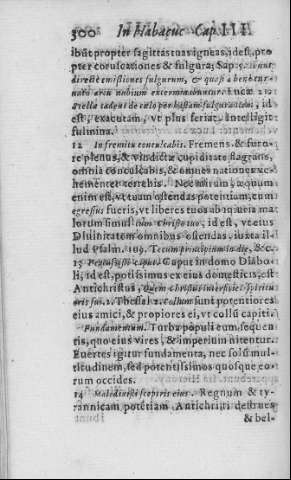 300 In Habacuc Cap. III.
ibũt propter sagittas tuas igneas, id est, pro
pter coruscationes & fulgura; Sap. 5. Ibunt
directè emissiones fulgurum, & quasi à benè cur-
uato arcu nubium exterminabuntur. Lucæ
de cælo
est, exeuntam, vt plus feriat, ante
fulmina.
12 In fremitu conculcabis. Fremens, & furo-
re plenus, & vindictæ cupiditate flagrãs,
omnia conculcabis, & omnes nationes ve-
hementer terrebis. Nec mirum, æquum
enim est, vt tuam ostendas potentiam, cum
egressus fueris, vt liberes tuos ab iniuria ma-
lorum simul cum Christo tuo, id est, vt ectus
Diuinitatem omnibus ostendas, iuxta il-
lud Psalm. 109. Tecum principium in die, &c.
13 Percussisti caput. Caput in domo Diabo-
li, id est, potissimus ex eius domesticis, est
Antichristus, Quem Christus interficiet Spiritu
oris sui, 2. Thessal. 2. Collum sunt potentiores
eius amici, & propiores ei, vt collũ capiti.
Fundamentum. Turba populi eum sequen-
tis, quo eius vires, & imperium nitentur.
Euertes igitur fundamenta, nec solũ mul-
titudinem, sed potentissimos quosque eo-
rum occides.
14 Maledixisti sceptris eius. Regnum & ty-
rannicam potẽtiam Antichristi destrues
& bel-